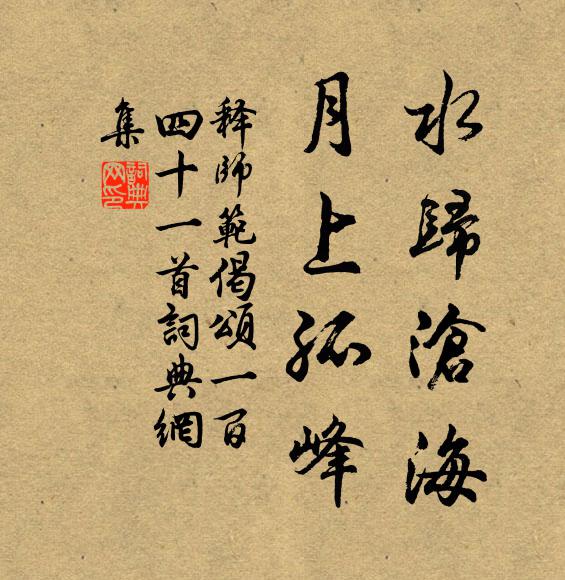 水歸滄海
月上孤峰
釋師範偈頌一百
四十一首詞典網
集
詞典網印